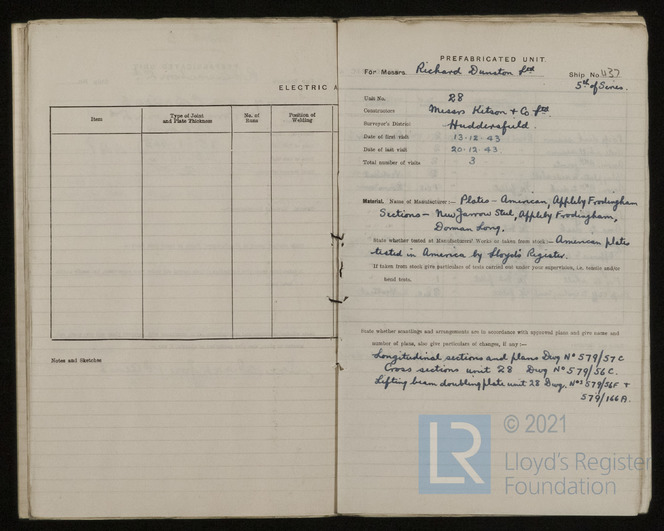 ELECTRIC A
Item
Type of Joint and Plate Thickness
No. of Runs
Position of Welding
Notes and Sketches
PREFABRICATED UNIT
For Messrs. Richard Dunston Ltd
Ship No. 437
5th of Series.
Unit No. 28
Constructors Messrs Kitson & Co Ltd.
Surveyor's District Huddersfield.
Date of first visit 13.12.43
Date of last visit 20.12.43
Total number of visits 3
Material. Name of Manufacturer:— Plates — American, Appleby Frodingham
Sections — New Jarrow Steel, Appleby Frodingham,
Dorman Long.
State whether tested at Manufacturers' Works or taken from stock:— American plates
tested in America by Lloyd's Register.
If taken from stock give particulars of tests carried out under your supervision, i.e. tensile and/or
bend tests.
State whether scantlings and arrangements are in accordance with approved plans and give name and
number of plans, also give particulars of changes, if any:—
Longitudinal sections and plans Dwg No 579/57C
Cross sections unit 28 Dwg No 579/56C.
Lifting beam doubling plate unit 28 Dwg. Nos 579/56F +
579/166A.
LR
© 2021
Lloyd's Register
Foundation